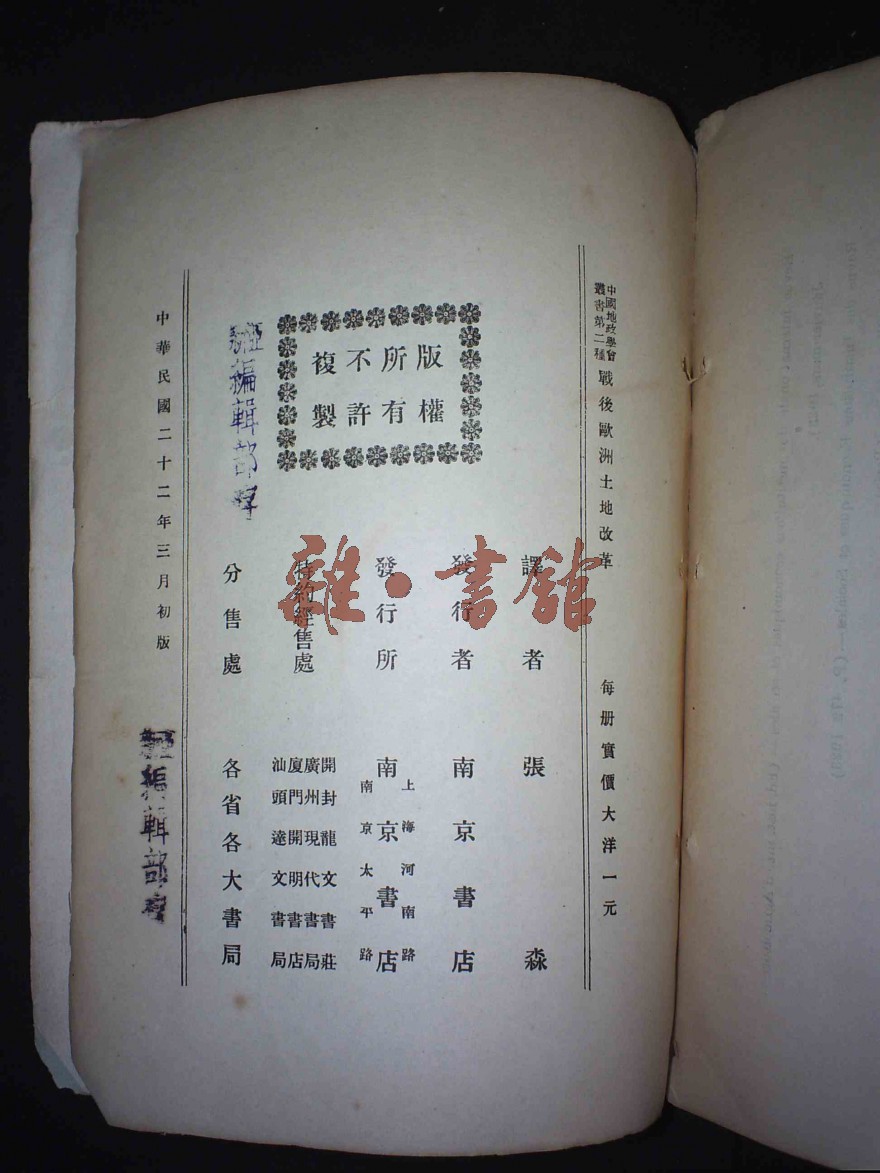 中國地政學會
叢書第二種
戰後歐洲土地改革
每册實價大洋一元
版權
所有
不許
複製
譯者
張森
發行者
南京書店
發行所
上海河南路
南京書店
南京太平路
特約經售處
開封龍文書莊
廣州現代書局
廈門開明書店
汕頭達文書局
分售處
各省各大書局
中華民國二十二年三月初版
編輯部
編輯部
雜·書館